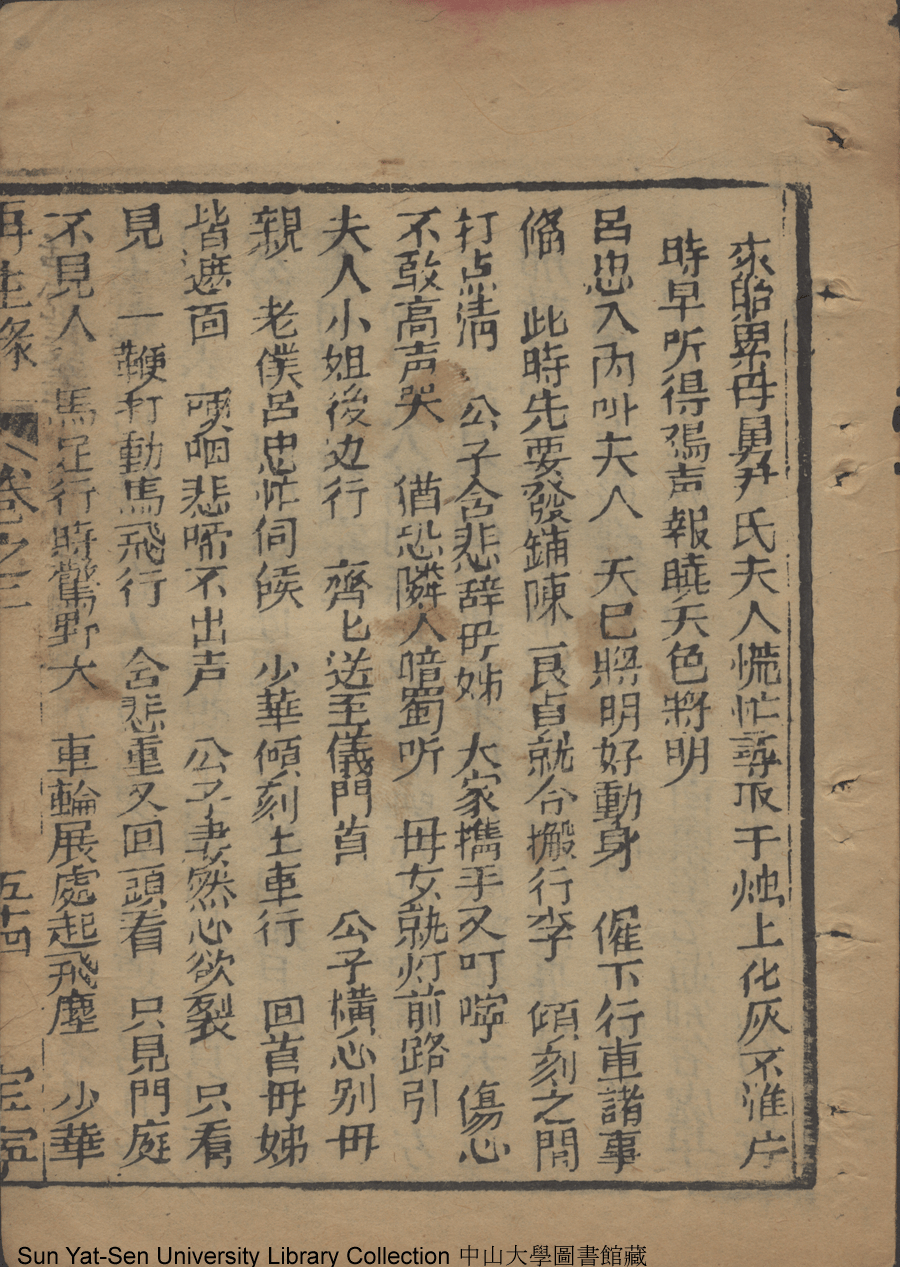 來貽累母舅尹氏夫人慌忙尋取于烛上化灰不淮片
時早所得鳮声報曉天色將明
呂忠入內叫夫人　天巳將明好動身　催下行車諸事
俻　此時先要發鋪陳　良貞就合搬行李　傾刻之間
打点淸　公子含悲辞毋姊　大家攜手又叮嚀　傷心
不敢高声哭　猶恐隣人暗蜀听　毋女就灯前路引
夫人小姐後边行　齊匕送至儀門首　公子橫心别毋
親　老僕呂忠忙伺候　少華傾刻上車行　回首毋姊
皆遮面　哽咽悲啼不出声　公子凄然心欲裂　只看
見一鞭打動馬飛行　含悲重又回頭看　只見門庭
不見人　馬足行時驚野犬　車輪展處起飛塵　少華
再生緣　卷之三　五十四　宝寧
Sun Yat-Sen University Library Collection 中山大學圖書館藏